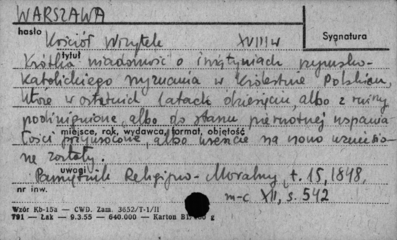 WARSZAWA
hasło
Sygnatura
Kościół Wizytek XVIII w
tytuł
Krótka wiadomość o świątyniach rzymsko-
katolickiego wyznania w Królestwie Polskiem,
które w ostatnich latach dziesięciu albo z ruiny
podźwignione, albo do stanu pierwotnej wspania
miejsce, rok, wydawca, format, objętość
łości przywrócone, albo wreście na nowo wzniesio-
ne zostały.
uwagi
Pamiętnik Religijno-Moralny, t. 15, 1848,
nr inw.
m-c XII, s. 542
Wzór Kb-15a — CWD. Zam. 3652/T-1/II
T91 — Łak — 9.3.55 — 640.000 — Karton